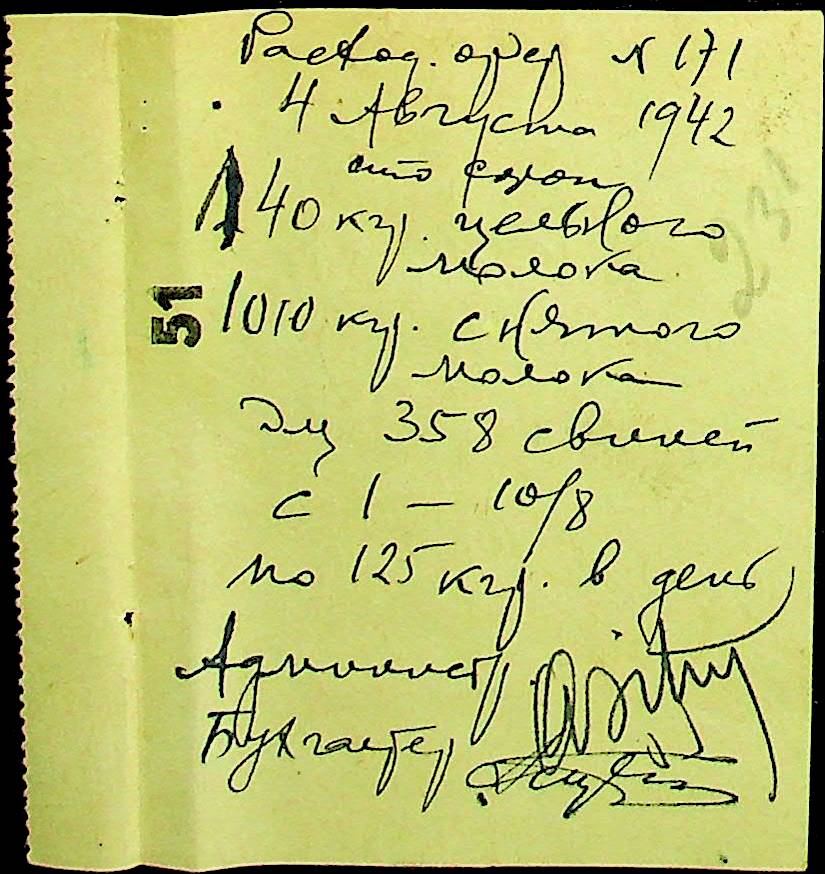 Расход. орд. № 171
4 Августа 1942
сто сорок
140 кгр. цельного
молока
1010 кгр. снятого
молока
Для 358 свиней
с 1 – 10/8
по 125 кгр. в день
Администр.
Бухгалтер
51
231